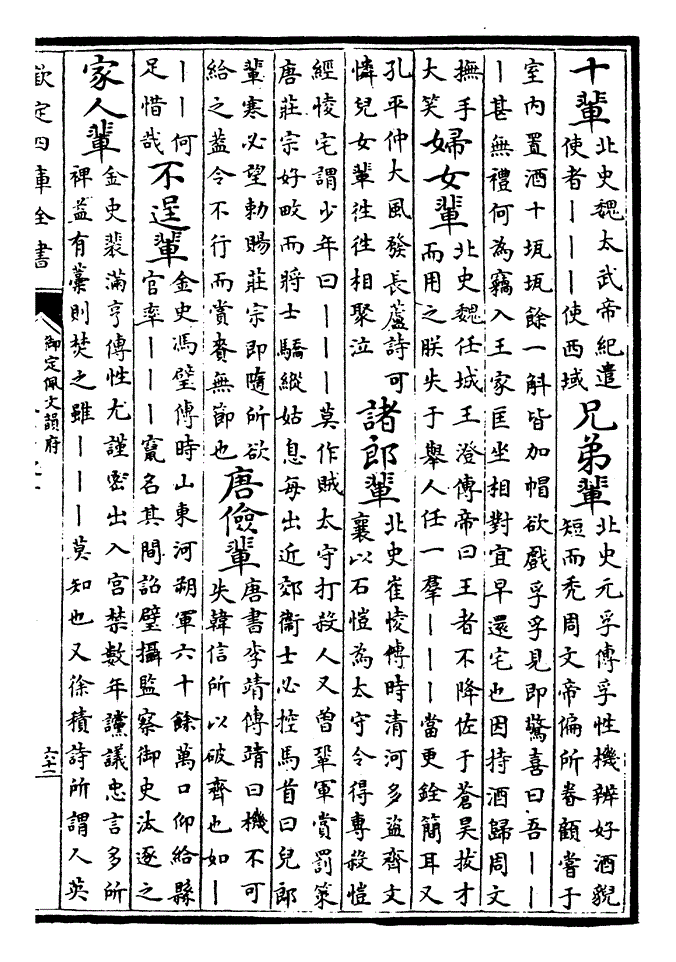 十輩
北史魏太武帝紀遣
使者｜｜｜使西域
兄弟輩
北史元孚傳孚性機辨好酒貌
短而秃周文帝偏所眷顧嘗于
室内置酒十瓨瓨餘一斛皆加帽欲戲孚孚見即驚喜曰吾｜｜
｜甚無禮何為竊入王家匡坐相對宜早還宅也因持酒歸周文
撫手
大笑
婦女輩
北史魏任城王澄傳帝曰王者不降佐于蒼昊拔才
而用之朕失于舉人任一羣｜｜｜當更銓簡耳又
孔平仲大風發長蘆詩可
憐兒女輩徃徃相聚泣
諸郎輩
北史崔㥄傳時清河多盜齊文
襄以石愷為太守令得專殺愷
經㥄宅謂少年曰｜｜｜莫作賊太守打殺人又曾鞏軍賞罰策
唐莊宗好畋而將士驕縱姑息每出近郊衞士必控馬首曰兒郎
輩寒必望勅賜莊宗即隨所欲
給之葢令不行而賞賚無節也
唐儉輩
唐書李靖傳靖曰機不可
失韓信所以破齊也如｜
｜｜何
足惜哉
不逞輩
金史馮璧傳時山東河朔軍六十餘萬口仰給縣
官率｜｜｜竄名其間詔璧攝監察御史汰逐之
家人輩
金史裴滿亨傳性尤謹密出入宫禁數年讜議忠言多所
裨益有藁則焚之雖｜｜｜莫知也又徐積詩所謂人英
欽定四庫全書
御定佩文韻府